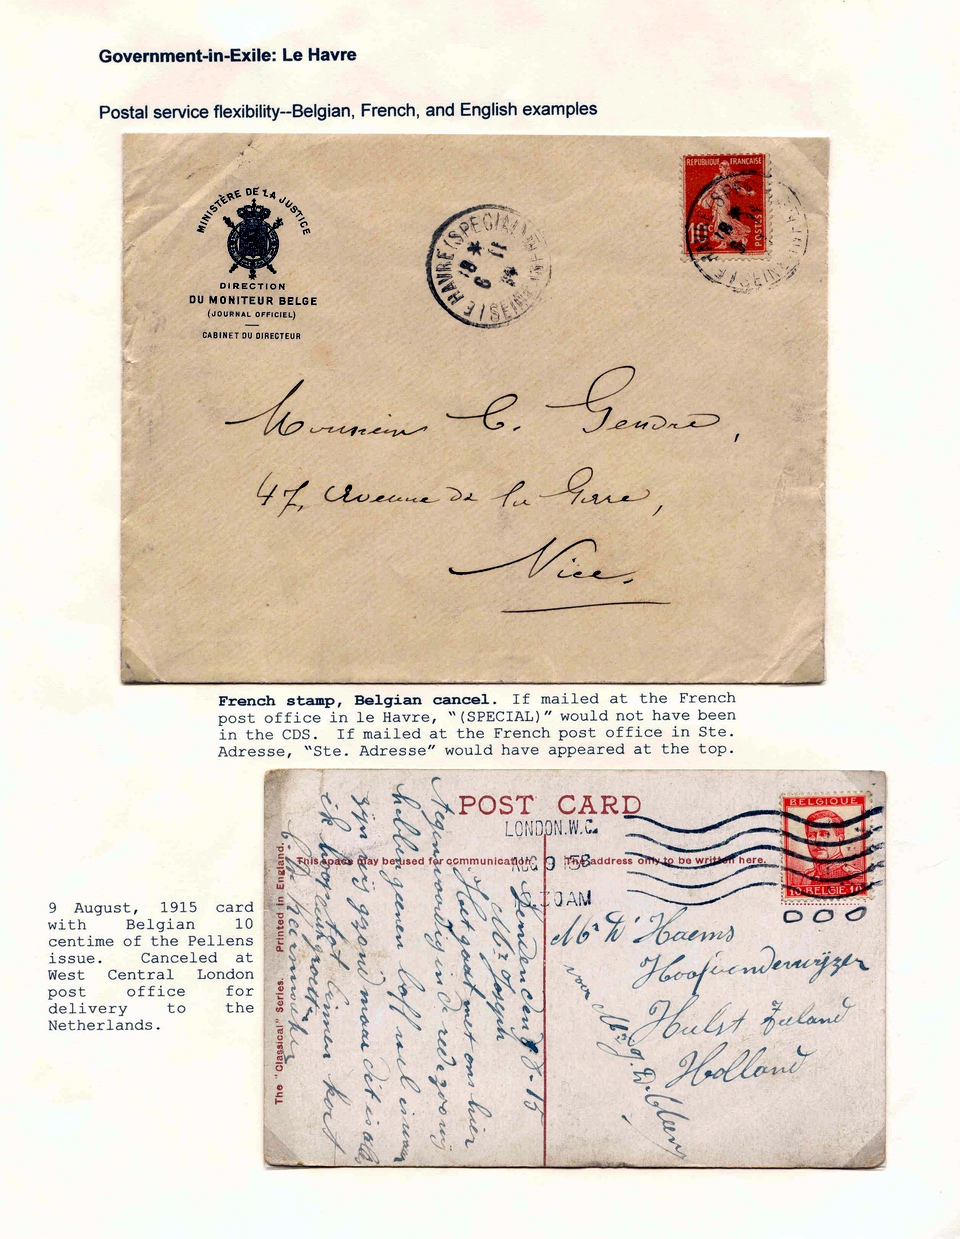 Government-in-Exile: Le Havre
Postal service flexibility--Belgian, French, and English examples
MINISTÈRE DE LA JUSTICE
DIRECTION
DU MONITEUR BELGE
(JOURNAL OFFICIEL)
CABINET DU DIRECTEUR
LE HAVRE (SPECIAL)
REPUBLIQUE FRANÇAISE
10
POSTES
Monsieur C. Gendre,
47, Avenue de la Gare,
Nice.
French stamp, Belgian cancel. If mailed at the French
post office in le Havre, “(SPECIAL)” would not have been
in the CDS. If mailed at the French post office in Ste.
Adresse, “Ste. Adresse” would have appeared at the top.
9 August, 1915 card
with Belgian 10
centime of the Pellens
issue. Canceled at
West Central London
post office for
delivery to the
Netherlands.
POST CARD
LONDON.W.C.
AUG 9 15
30AM
This space may be used for communication.
The address only to be written here.
BELGIQUE
10 BELGIE 10
The "Classical" Series. Printed in England.
Mr D'Haems
Hoofdonderwijzer
Hulst Zeeland
Holland
Londen den 8-15
Mr Joseph
Het gaat met ons hier
tegenwoordig in de
hebben geenen
zijn nog gezond maar dit is alles
ik hoop tot binnen kort